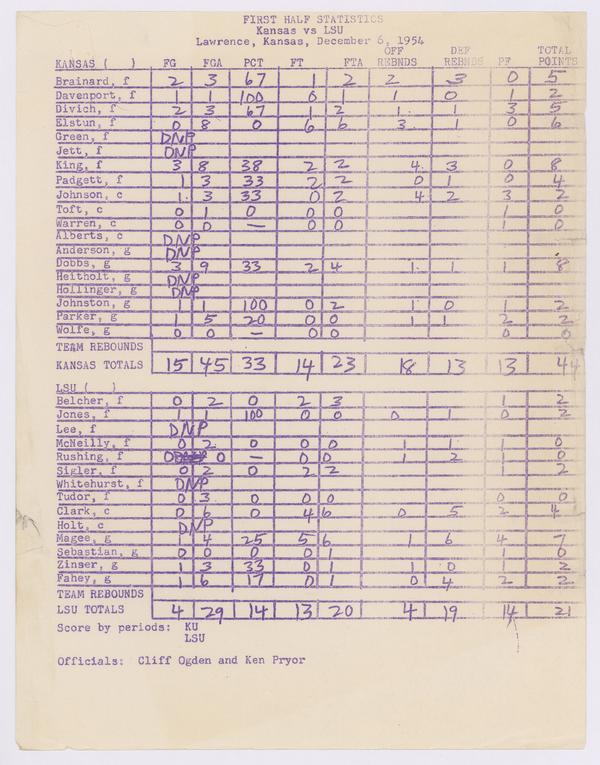 FIRST HALF STATISTICS
Kansas vs LSU
Lawrence, Kansas, December 6, 1954
KANSAS ( ) FG FGA PCT FT FTA OFF REBNDS DEF REBNDS PF TOTAL POINTS
Brainard, f 2 3 67 1 2 2 3 0 5
Davenport, f 1 1 100 0 1 1 0 1 2
Divich, f 2 3 67 1 2 1 1 3 5
Elstun, f 0 8 0 6 6 3 1 0 6
Green, f DNP
Jett, f DNP
King, f 3 8 38 2 2 4 3 0 8
Padgett, f 1 3 33 2 2 0 1 0 4
Johnson, c 1 3 33 0 2 4 2 3 2
Toft, c 0 1 0 0 0 1 0
Warren, c 0 0 — 0 0 1 0
Alberts, c DNP
Anderson, g DNP
Dobbs, g 3 9 33 2 4 1 1 1 8
Heitholt, g DNP
Hollinger, g DNP
Johnston, g 1 1 100 0 2 1 0 1 2
Parker, g 1 5 20 0 0 1 1 2 2
Wolfe, g 0 0 — 0 0 0 0
TEAM REBOUNDS
KANSAS TOTALS 15 45 33 14 23 18 13 13 44
LSU ( )
Belcher, f 0 2 0 2 3 1 2
Jones, f 1 1 100 0 0 0 1 0 2
Lee, f DNP
McNeilly, f 0 2 0 0 0 1 1 1 0
Rushing, f 0 0 — 0 0 1 2 1 0
Sigler, f 0 2 0 2 2 1 2
Whitehurst, f DNP
Tudor, f 0 3 0 0 0 0 0
Clark, c 0 6 0 4 6 0 5 2 4
Holt, c DNP
Magee, g 1 4 25 5 6 1 6 4 7
Sebastian, g 0 0 0 0 1 1 0
Zinser, g 1 3 33 0 1 1 0 1 2
Fahey, g 1 6 17 0 1 0 4 2 2
TEAM REBOUNDS
LSU TOTALS 4 29 14 13 20 4 19 14 21
Score by periods: KU
LSU
Officials: Cliff Ogden and Ken Pryor